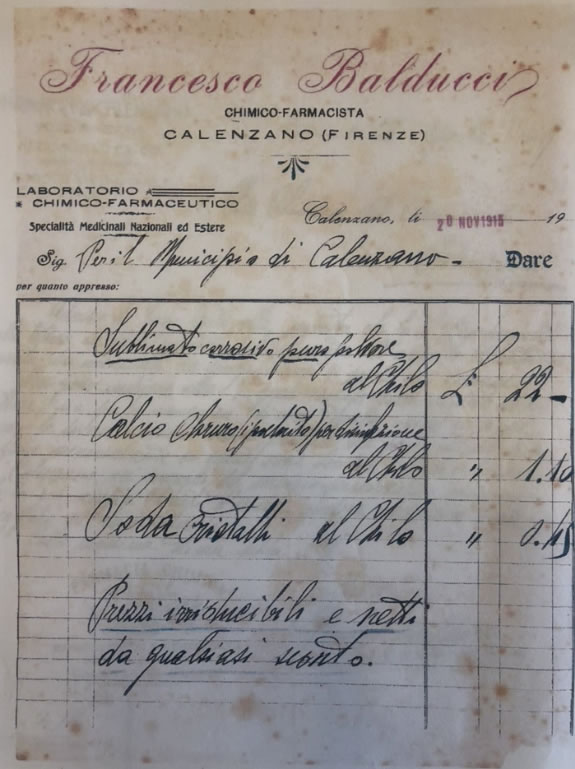 Francesco Balducci
CHIMICO-FARMACISTA
CALENZANO (FIRENZE)
LABORATORIO
CHIMICO-FARMACEUTICO
Specialità Medicinali Nazionali ed Estere
Calenzano, li 20 NOV 1915 19
Sig. Per il Municipio di Calenzano - Dare
per quanto appresso:
Sublimato corrosivo puro polvere
al Chilo £ 22 -
Calcio cloruro (ipoclorito) per disinfezione
al Chilo " 1.10
Soda cristalli al Chilo " 0.45
Prezzi irriducibili e netti
da qualsiasi sconto.